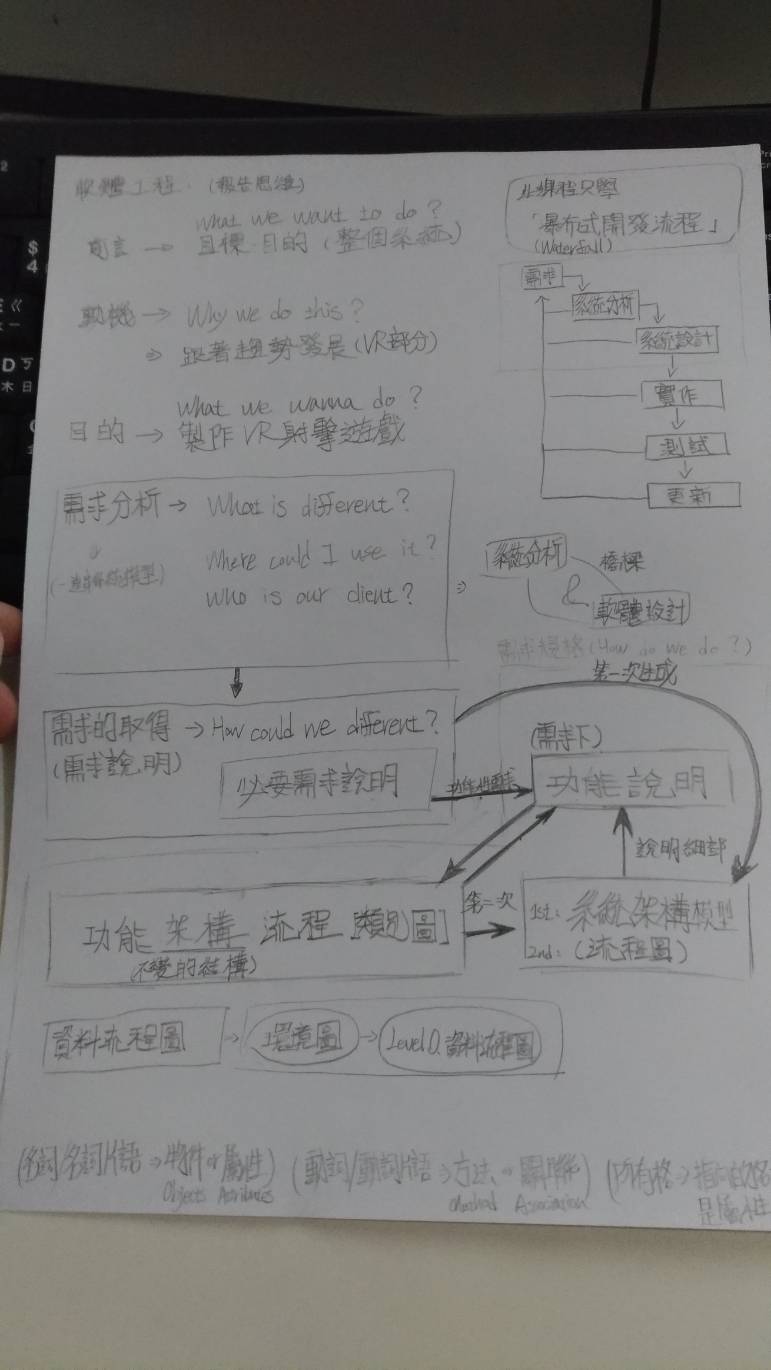 軟體工程. (報告思維)
What we want to do?
宣言 → 目標.目的 (整個系統)
動機 → Why we do this?
⇒ 跟著趨勢發展 (VR部分)
What we wanna do?
目的 → 製作VR射擊遊戲
此課程只學
「瀑布式開發流程」
(Waterfall)
需求
系統分析
系統設計
實作
測試
更新
需求分析 → What is different?
Where could I use it?
Who is our client?
系統分析
橋樑
&
軟體設計
需求規格 (How do we do?)
第一次生成
需求的取得 → How could we different?
(需求說明)
必要需求說明
功能性需求
(需求下)
功能說明
說明細部
功能 架構 流程 [類別圖]
(不變的結構)
第二次
1st: 系統架構模型
2nd: (流程圖)
資料流程圖 → 環境圖 → Level 0. 資料流程圖
(名詞/名詞片語 → 物件 or 屬性) (動詞/動詞片語 → 方法 or 關聯) (所有格 →
Objects Attributes Method Association
是屬性